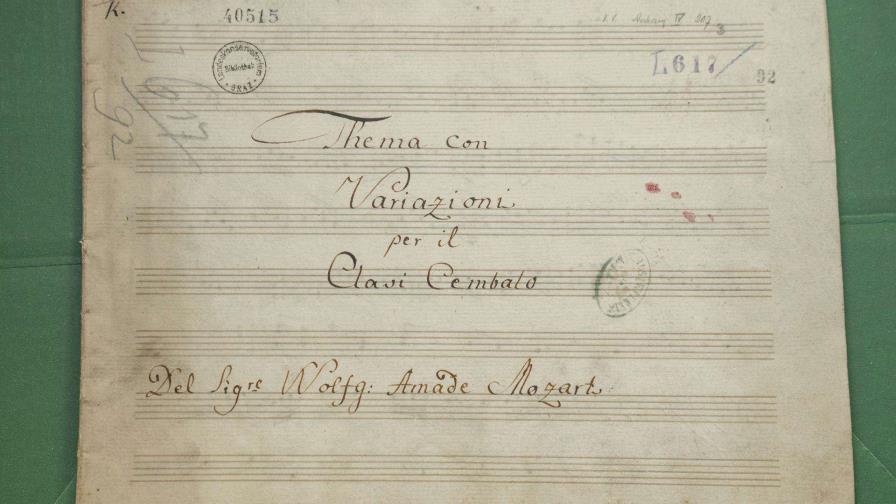 K.
40515
Landeskonservatorium
Bibliothek
GRAZ
Anhang IV 207
3
L617
92
L 617
92
Thema con
Variazioni
per il
Clavi Cembalo
Del Sigre Wolfg: Amade Mozart